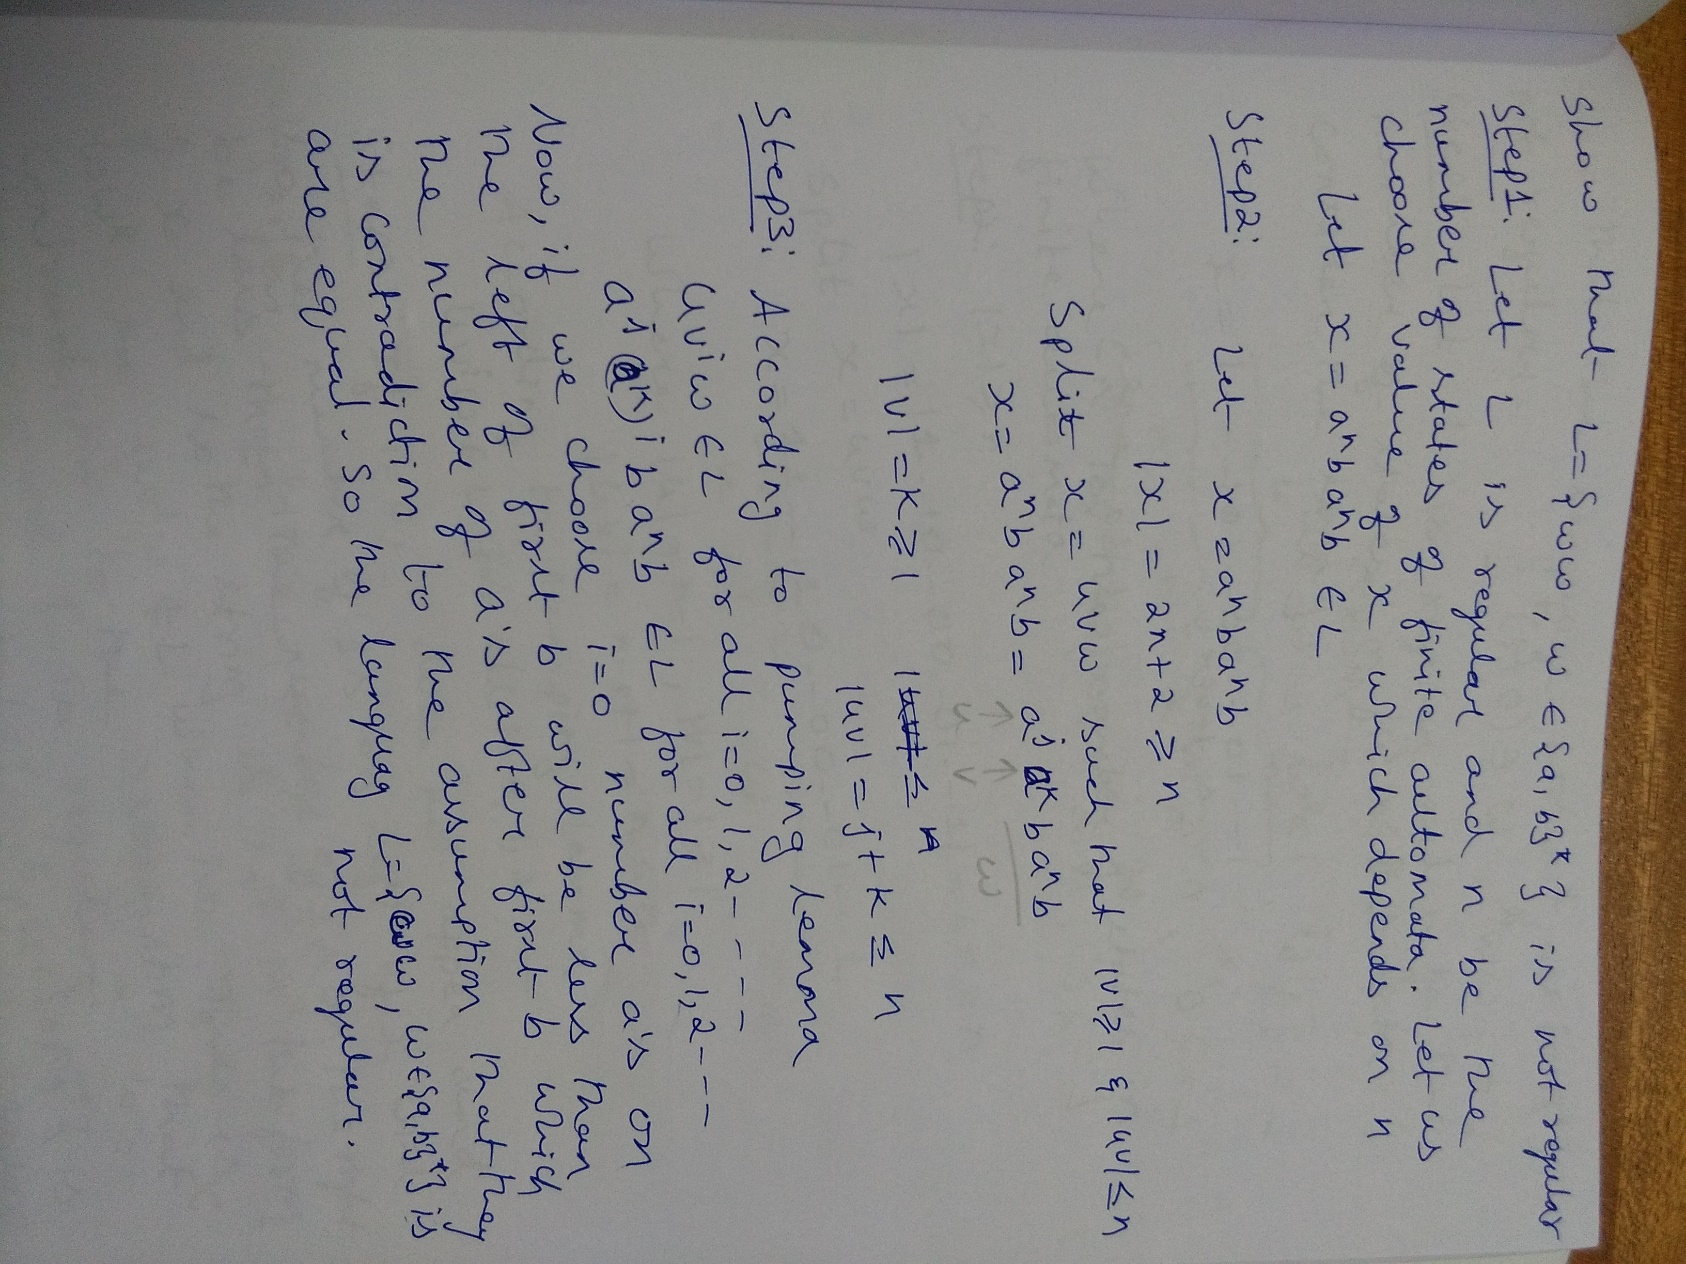 Show that L={ww, w ∈{a,b}*} is not regular
Step1: Let L is regular and n be the
number of states of finite automata. Let us
choose value of x which depends on n
Let x = aⁿbaⁿb ∈ L
Step2: Let x = aⁿbaⁿb
|x| = 2n+2 ≥ n
Split x = uvw such that |v|≥1 & |uv|≤n
x = aⁿbaⁿb = aʲ aᵏ baⁿb
u v w
|v| = k ≥ 1
|uv| = j + k ≤ n
Step3: According to pumping lemma
uvⁱw ∈ L for all i=0,1,2----
aʲ(aᵏ)ⁱ baⁿb ∈ L for all i=0,1,2---
Now, if we choose i=0 number a's on
the left of first b will be less than
the number of a's after first b which
is contradiction to the assumption that they
are equal. So the languag L={ww, w∈{a,b}*} is
not regular.